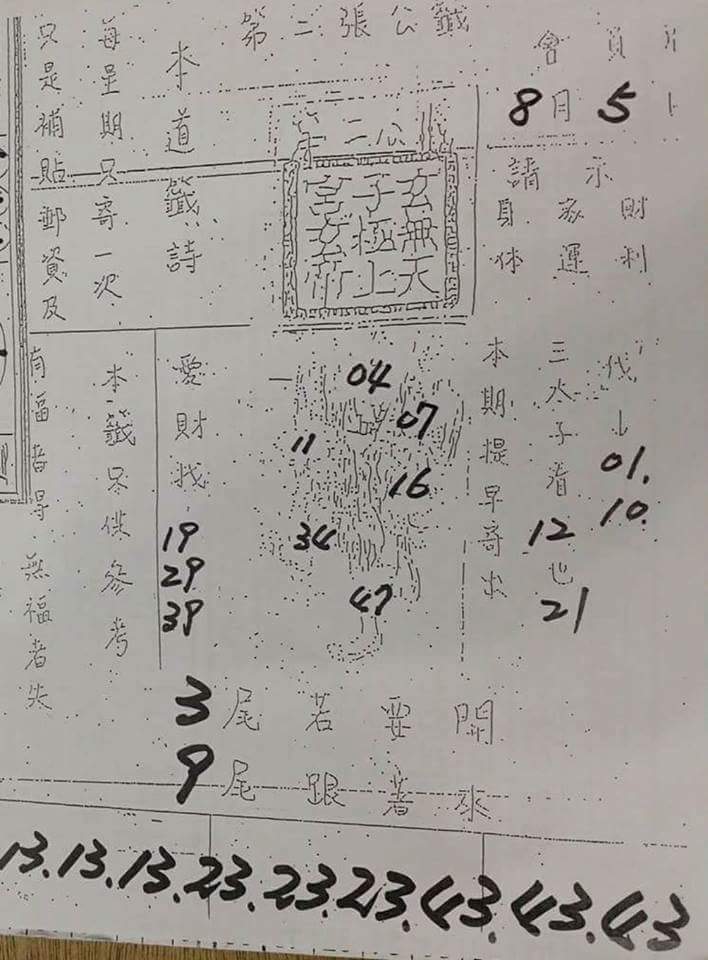 第二張公籤
會員
8月5
請示
財利
家運
身体
玄無天
子極上
本道籤詩
每星期只寄一次
只是補貼郵資及
代↓
01.
10.
三太子看12也21
本期提早寄出
04
07
11
16
34
47
愛財找
19
29
39
本籤只供參考
有福者得 無福者失
3尾若要開
9尾跟著來
13.13.13.23.23.23.43.43.43